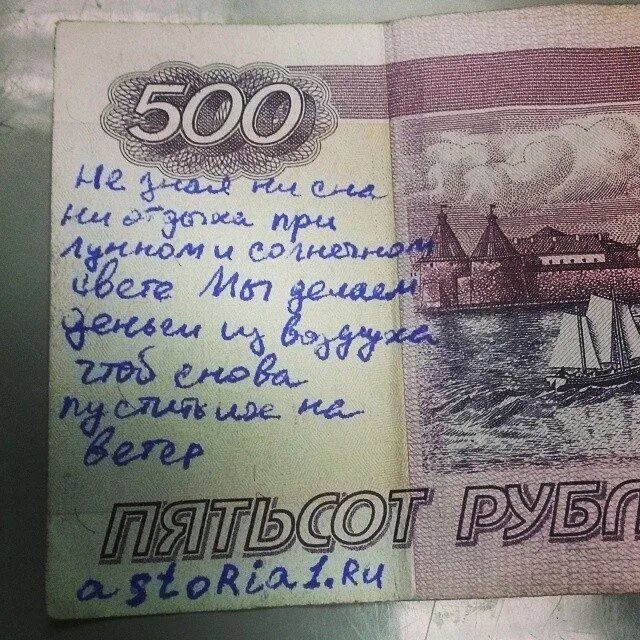 500
Не зная ни сна
ни отдыха при
лунном и солнечном
свете Мы делаем
деньги из воздуха
чтоб снова
пустить их на
ветер
ПЯТЬСОТ РУБЛ
astoRia1.Ru